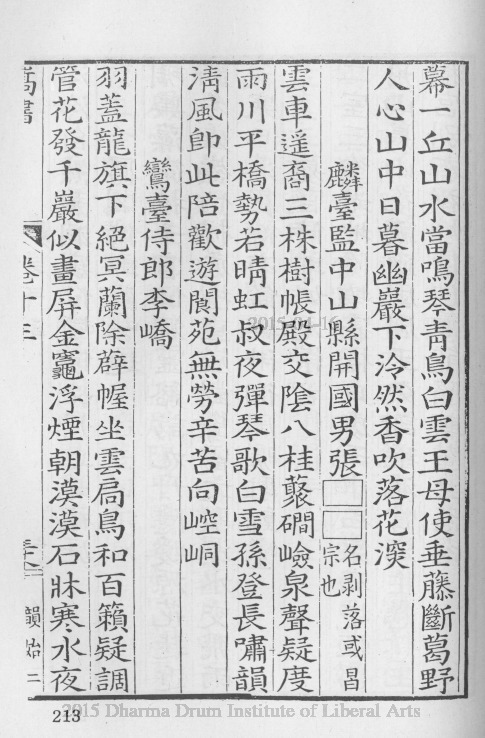 幕一丘山水當鳴琴青鳥白雲王母使垂藤斷葛野
人心山中日暮幽巖下泠然香吹落花深
麟臺監中山縣開國男張□□名剥落或昌宗也
雲車遥裔三株樹帳殿交陰八桂藂磵嶮泉聲疑度
雨川平橋勢若晴虹叔夜彈琴歌白雪孫登長嘯韻
淸風卽此陪歡遊閬苑無勞辛苦向崆峒
鸞臺侍郎李嶠
羽蓋龍旗下絕冥蘭除薜幄坐雲扃鳥和百籟疑調
管花發千巖似畫屏金竈浮煙朝漠漠石牀寒水夜
卷十三
韻始二
2015-04-16
213
2015 Dharma Drum Institute of Liberal Arts